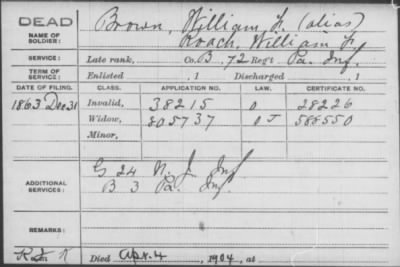 DEAD
NAME OF SOLDIER:
Brown, William F. (alias)
Roach, William F.
SERVICE: Late rank, Co. B 72 Reg't Pa. Inf.
TERM OF SERVICE: Enlisted , 1 Discharged , 1
DATE OF FILING. CLASS. APPLICATION NO. LAW. CERTIFICATE NO.
1863 Dec 31 Invalid, 38215 0 28226
Widow, 805737 0 J 588550
Minor,
ADDITIONAL SERVICES:
G 24 N. J. Inf
B 3 Pa. Inf.
REMARKS:
Died Apr. 4, 1904, at